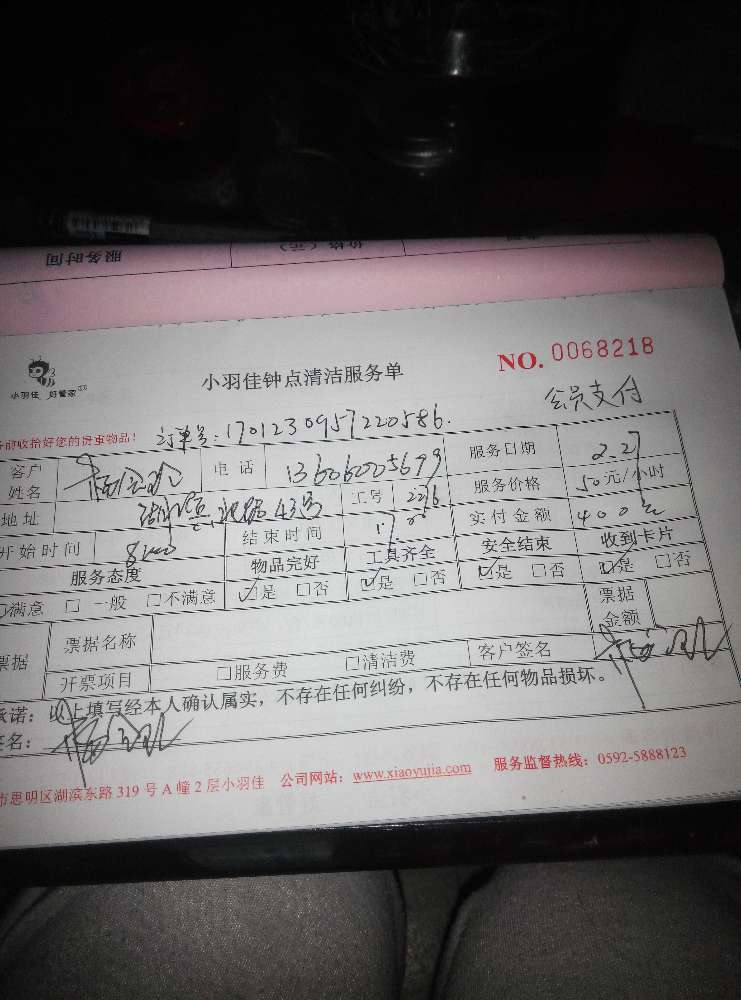 服务时间
价格(元)
小羽佳 好管家
小羽佳钟点清洁服务单
NO. 0068218
会员支付
务前收拾好您的贵重物品!
订单号: 1701230957220586.
客户姓名
电话
13606005699
服务日期
2.27
地址
43号
工号
2226
服务价格
50元/小时
开始时间
结束时间
实付金额
400元
服务态度
物品完好
工具齐全
安全结束
收到卡片
满意 □ 一般 □不满意
☑是 □否
☑是 □否
☑是 □否
☑是 □否
票据
票据名称
票据金额
开票项目
□服务费
□清洁费
客户签名
承诺: 以上填写经本人确认属实,不存在任何纠纷,不存在任何物品损坏。
签名:
市思明区湖滨东路 319 号 A 幢 2 层小羽佳 公司网站: www.xiaoyujia.com 服务监督热线: 0592-5888123